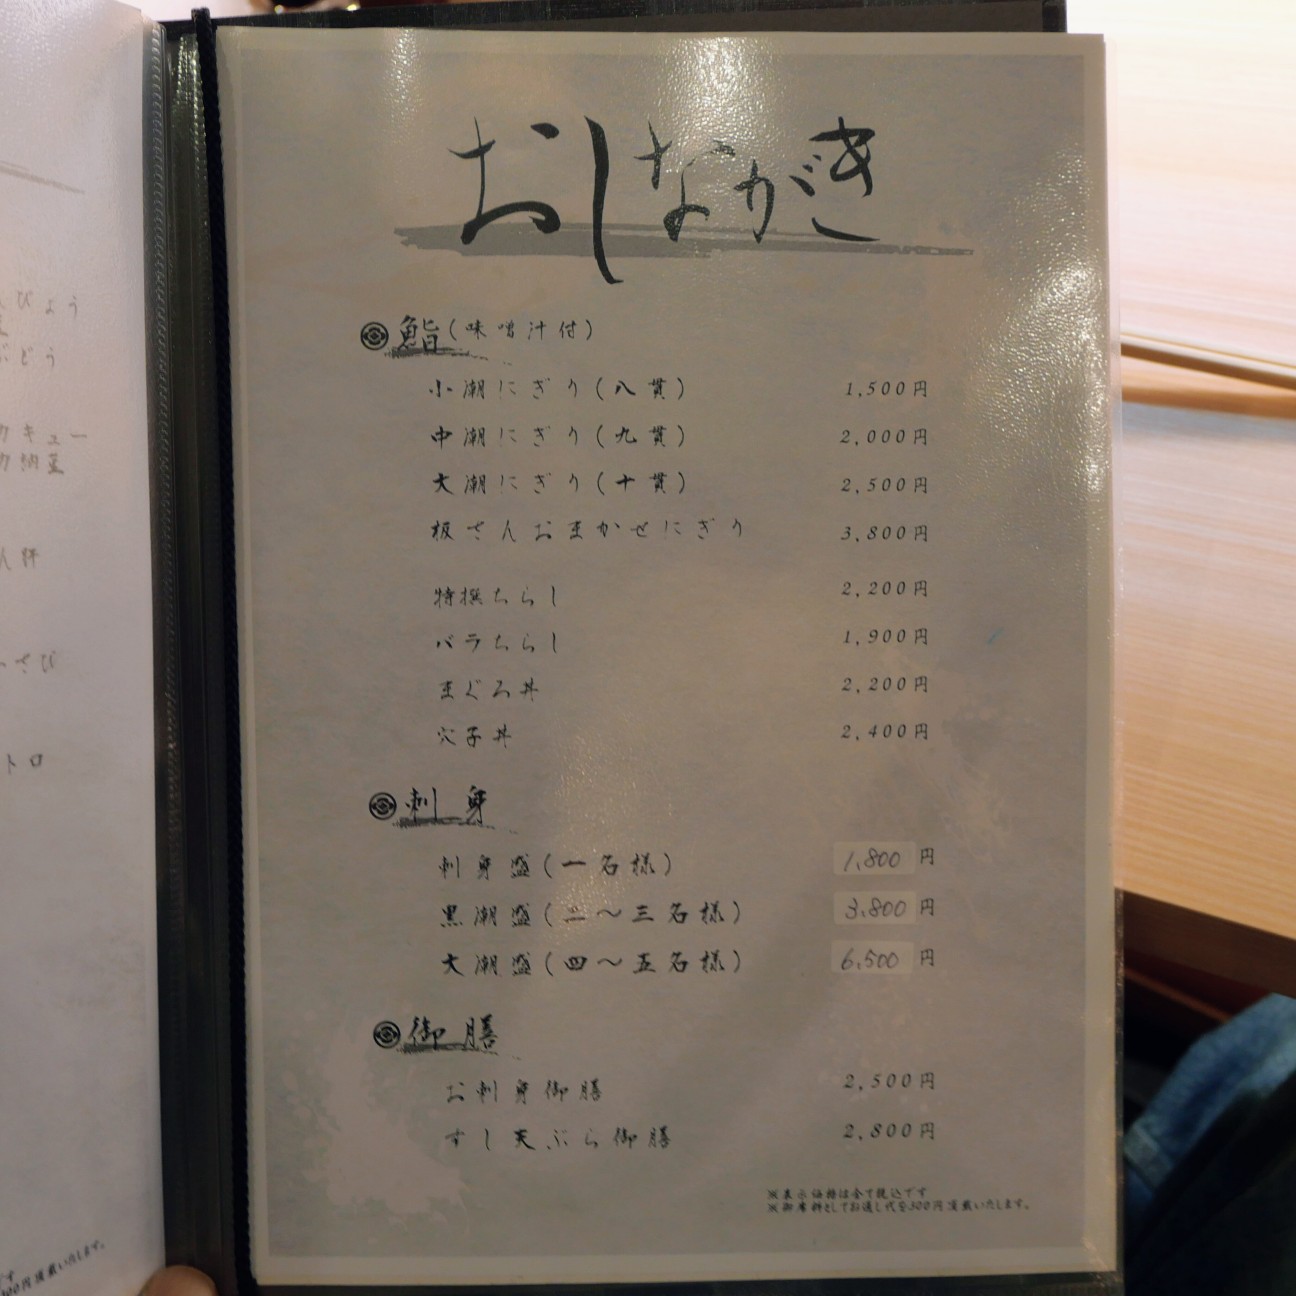 おしながき
鮨(味噌汁付)
小潮にぎり(八貫) 1,500円
中潮にぎり(九貫) 2,000円
大潮にぎり(十貫) 2,500円
板さんおまかせにぎり 3,800円
特撰ちらし 2,200円
バラちらし 1,900円
まぐろ丼 2,200円
穴子丼 2,400円
刺身
刺身盛(一名様) 1,800円
黒潮盛(二〜三名様) 3,800円
大潮盛(四〜五名様) 6,500円
御膳
お刺身御膳 2,500円
すし天ぷら御膳 2,800円
※表示価格は全て税込です
※御席料としてお通し代を300円頂戴いたします。